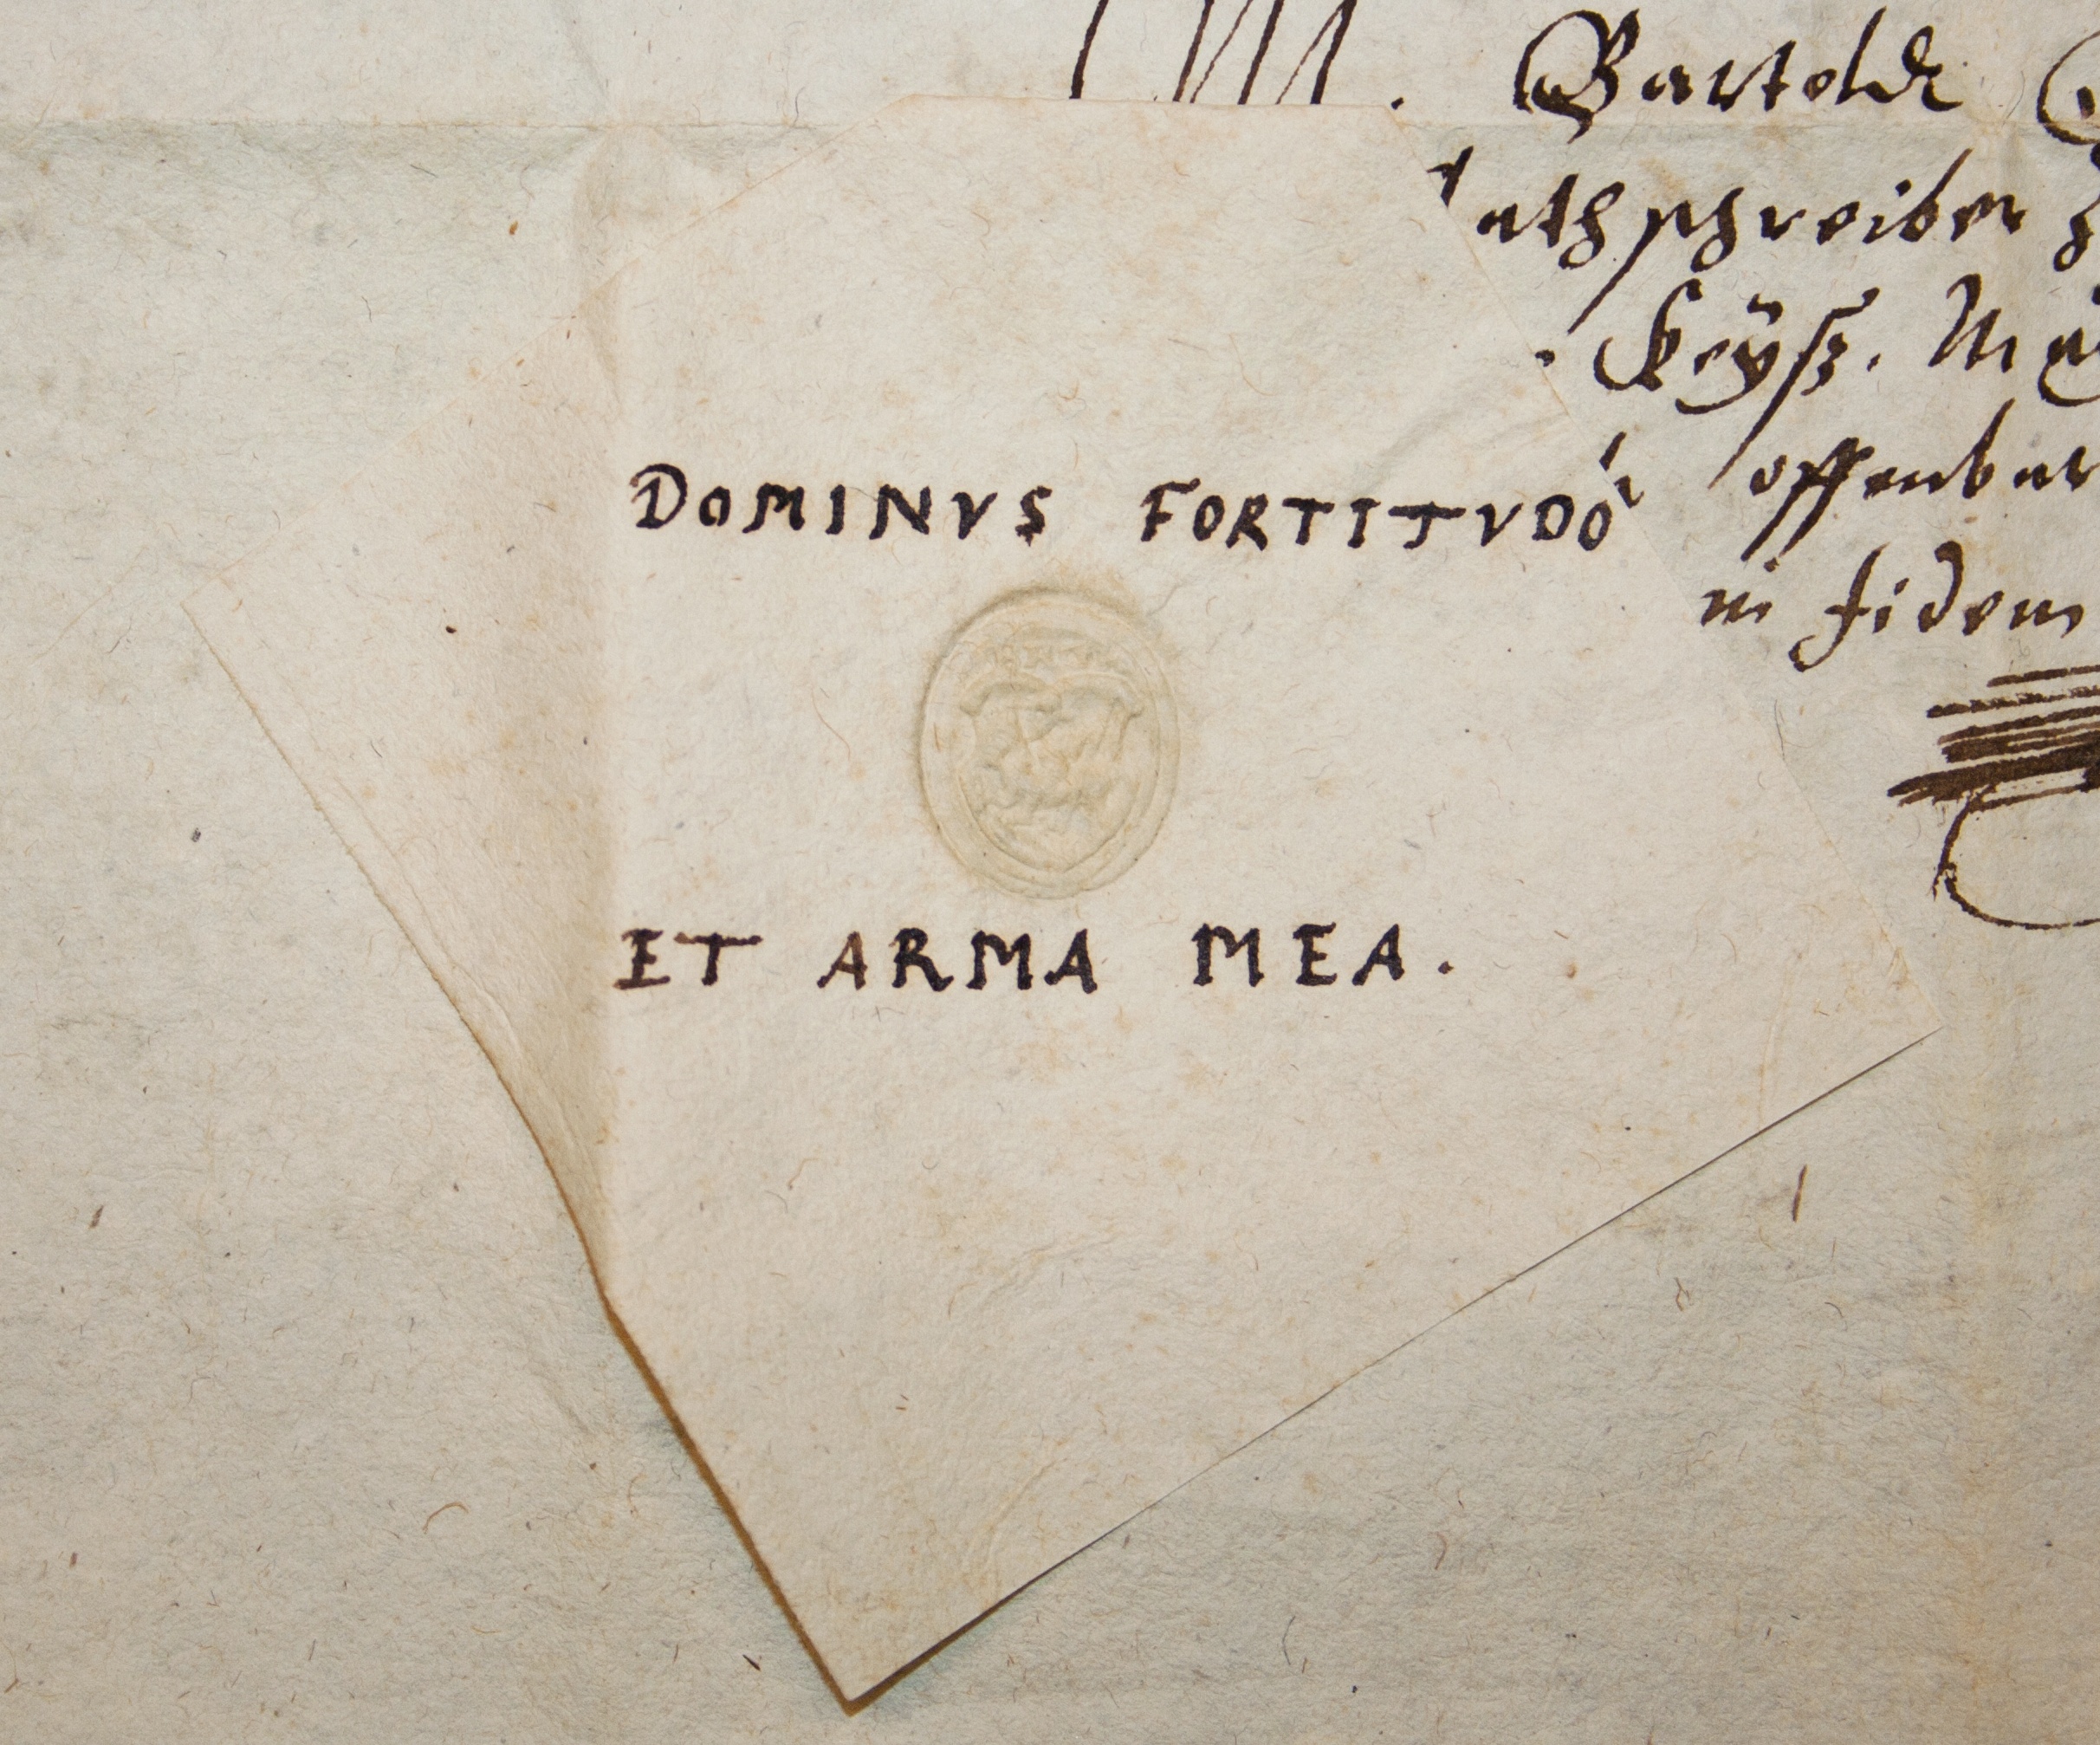 M. Bartoldt
athschreiber
Keÿß. Maj
offenbar
in fidem
DOMINVS FORTITVDO
ET ARMA MEA.